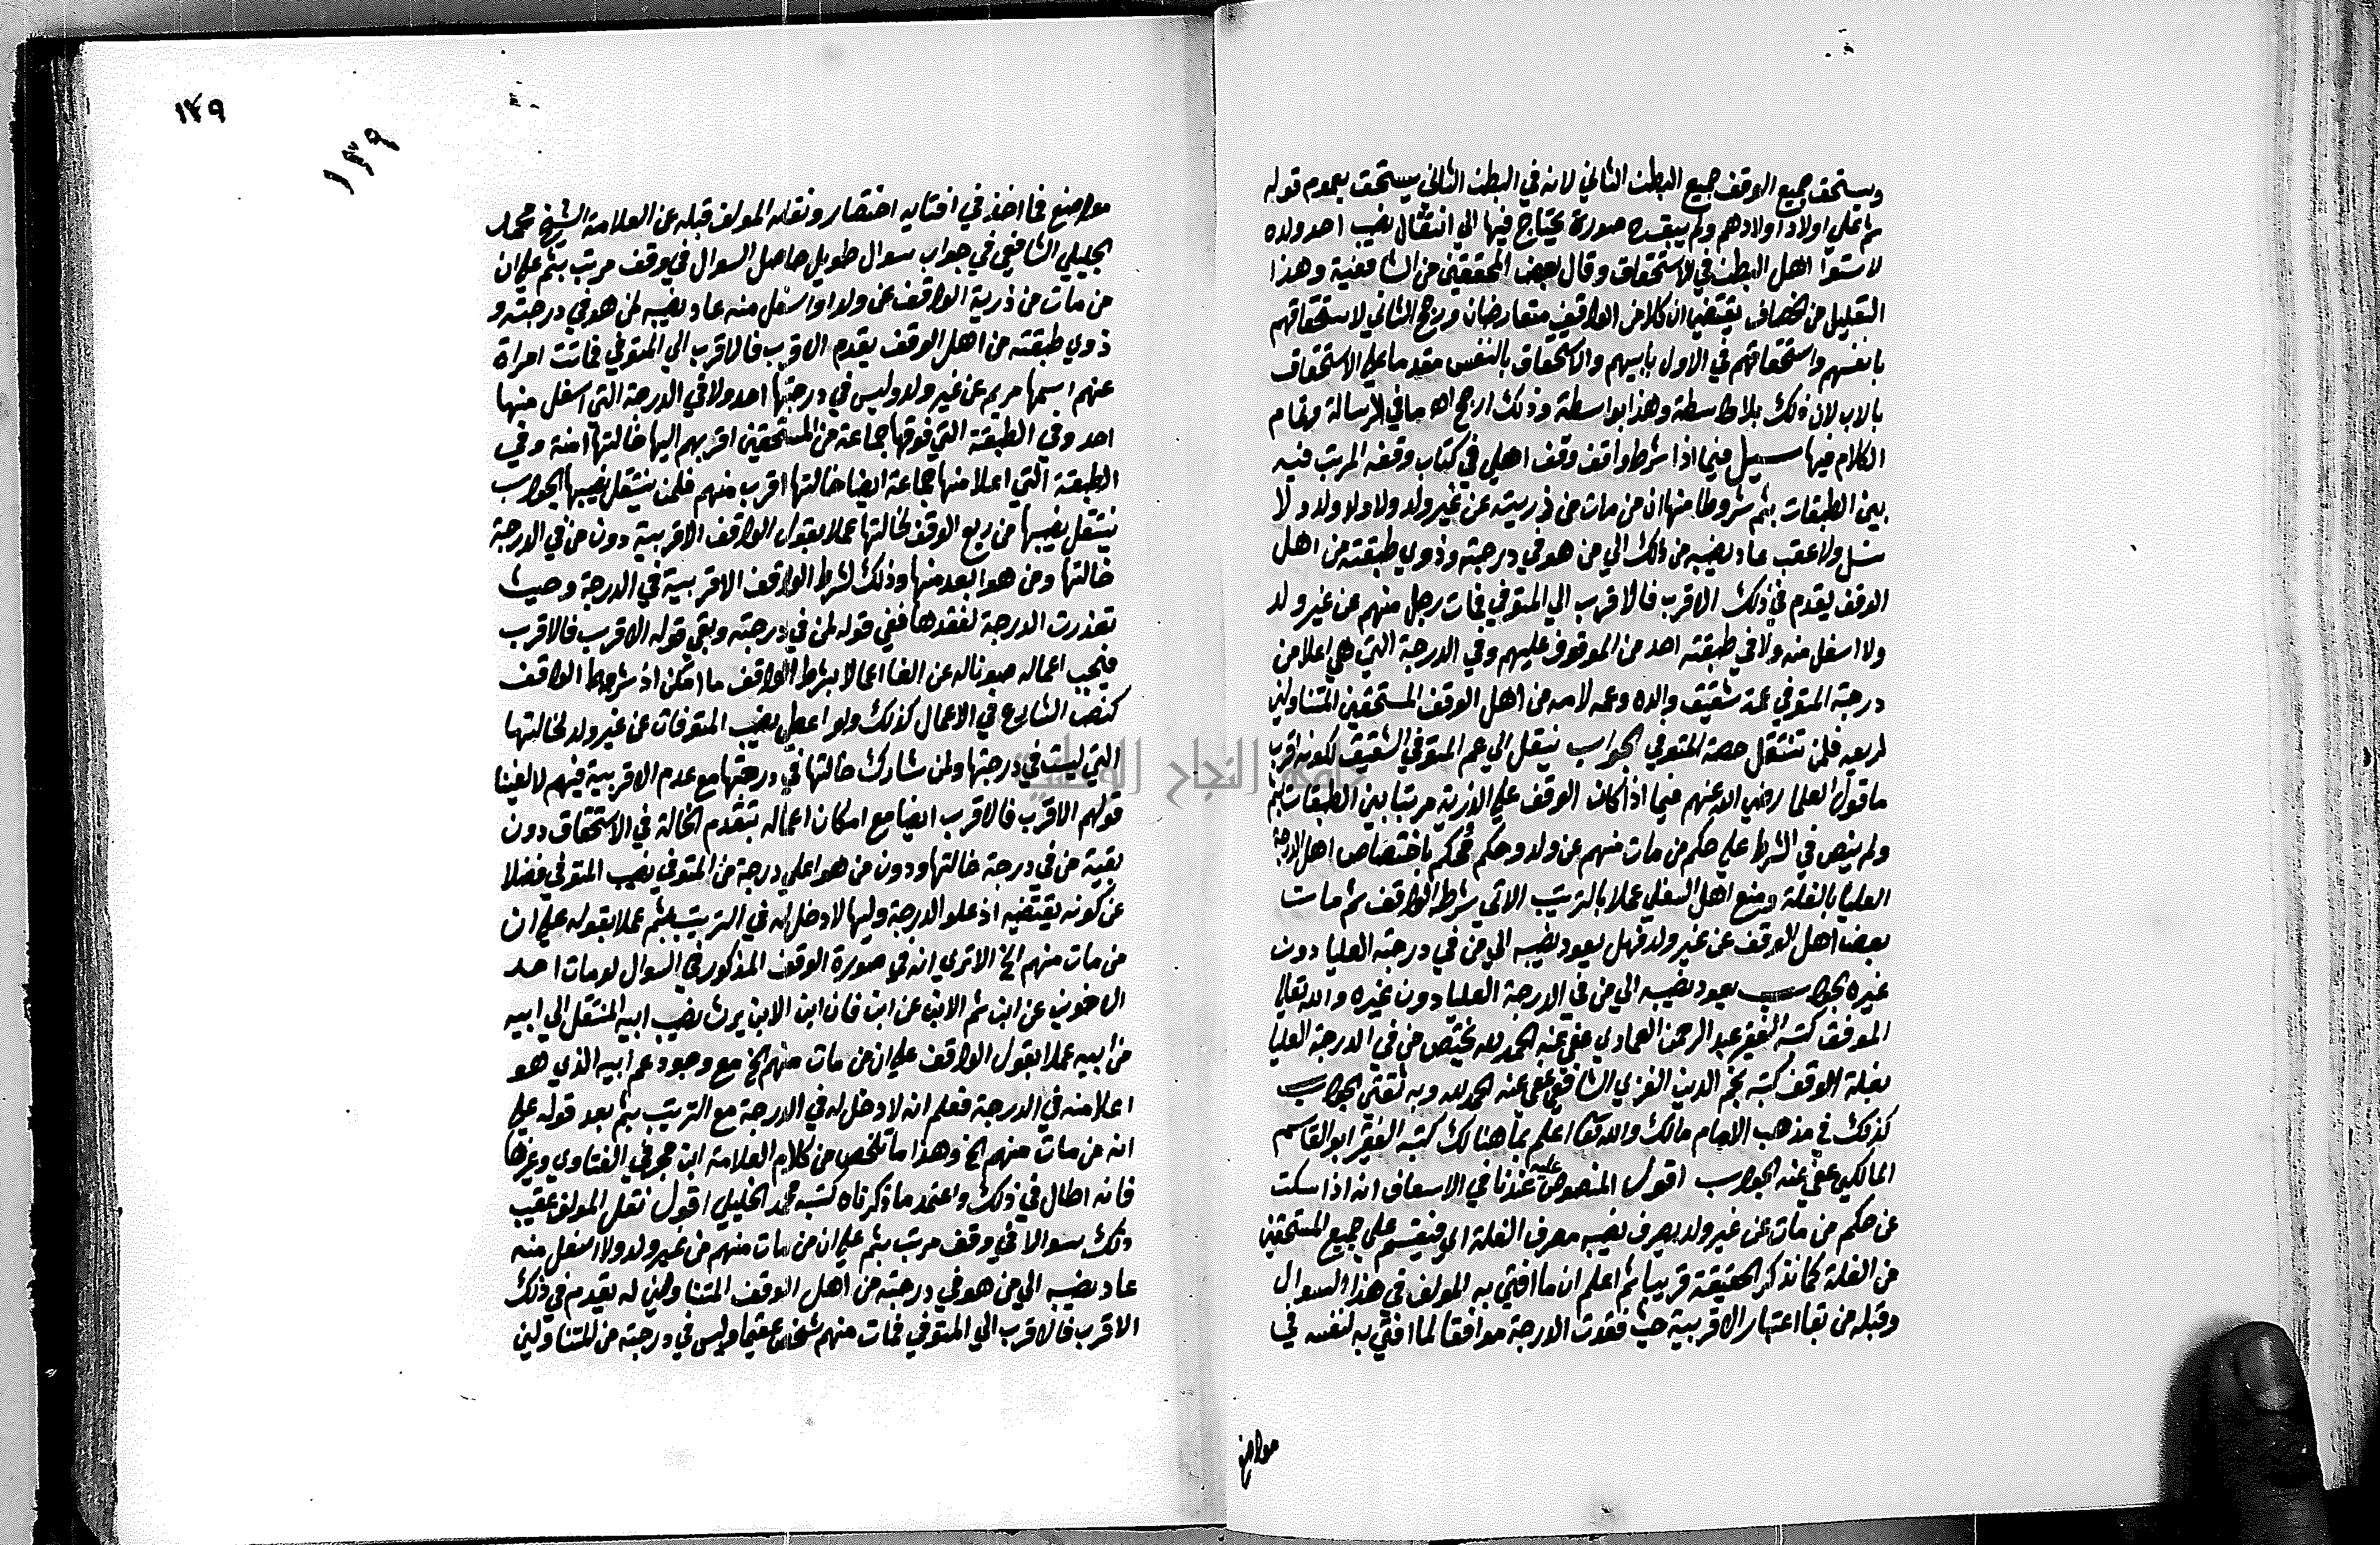 ويستحق جميع الوقف جميع البطن الثاني لانه في البطن الثاني يستحق بعموم قوله
ثم على اولاد اولادهم ولم يبق صورة يحتاج فيها الي انتقال نصيب احد ولده
لاستوا اهل البطن في الاستحقاق وقال بعض المحققين من الشافعية وهذا
التعليل من الخصاف يقتضي ان كلا من الواقف متعارضان ورجح الثاني لاستحقاقهم
بانفسهم واستحقاقهم في الاول بابيهم والاستحقاق بالنفس مقدما على الاستحقاق
بالاب لان ذلك بلا واسطة وهذا بواسطة وذلك ارجح اه ما في الرسالة وتمام
الكلام فيها سيل فيما اذا شرط واقف وقف اهلي في كتاب وقفه المرتب فيه
بين الطبقات بثم شروطا منها ان من مات من ذريته عن غير ولد ولا ولد ولد ولا
نسل ولا عقب عاد نصيبه من ذلك الي من هو في درجته وذوي طبقته من اهل
الوقف يقدم في ذلك الاقرب فالاقرب الي المتوفي فمات رجل منهم عن غير ولد
ولا اسفل منه ولا في طبقته احد من الموقوف عليهم وفي الدرجة التي هي اعلا من
درجة المتوفي عمة شقيق والده وعمه لامه من اهل الوقف المستحقين المتناولين
لريعه فلمن تنتقل حصة المتوفي الجواب ينتقل الي عم المتوفي الشقيق لكونه اقرب
ما قول العلما رضي الله عنهم فيما اذا كان الوقف علي الذرية مرتبا بين الطبقات بثم
ولم ينص في الشرط علي حكم من مات منهم عن ولد وحكم محكم باختصاص اهل الدرجة
العليا بالغلة ومنع اهل السفلي عملا بالترتيب الاتي بشرط الواقف ثم مات
بعض اهل الوقف عن غير ولد فهل يعود نصيبه الي من في درجته العليا دون
غيره الجواب يعود نصيبه الي من في الدرجة العليا دون غيره والله تعالى
الموفق كتبه الفقير عبد الرحمن العمادي عفي عنه الحمد لله يختص من في الدرجة العليا
بغلة الوقف كتبه نجم الدين الغزي الشافعي عفي عنه الحمد لله وبه ثقتي الجواب
كذلك في مذهب الامام مالك والله تعا اعلم بما هنالك كتبه الفقير ابو القاسم
المالكي عفي عنه الجواب اقول المنصوص عليه عندنا في الاسعاف انه اذا سكت
عن حكم من مات عن غير ولد يصرف نصيبه مصرف الغلة اي فيقسم على جميع المستحقين
من الغلة كما نذكر الحقيقة قريبا ثم اعلم ان ما افتي به المولف في هذا السوال
وقبله من بقا اعتبار الاقربية حيث فقدت الدرجة موافقا لما افتي به لنفسه في
مواضع
١٤٩
١٤٩
مواضع فما اخذ في افتايه اختصار ونقله المولف قبله عن العلامة الشيخ محمد
الخليلي الشافعي في جواب سوال طويل حاصل السوال في وقف مرتب بثم علي ان
من مات من ذرية الواقف عن ولد او اسفل منه عاد نصيبه لمن هو في درجته و
ذوي طبقته من اهل الوقف يقدم الاقرب فالاقرب الي المتوفي فماتت امراة
عنهم اسمها مريم عن غير ولد وليس في درجتها احد ولا في الدرجة التي اسفل منها
احد وفي الطبقة التي فوقها جماعة من المستحقين اقربهم اليها خالتها امنة وفي
الطبقة التي اعلا منها جماعة ايضا خالتها اقرب منهم فلمن ينتقل نصيبها الجواب
ينتقل نصيبها من ريع الوقف لخالتها عملا بقول الواقف الاقربية دون من في الدرجة
خالتها ومن هو ابعد منها وذلك لشرط الواقف الاقربية في الدرجة وحيث
تعذرت الدرجة لفقدها فبقي قوله لمن في درجته وبقي قوله الاقرب فالاقرب
فيجب اعماله صونا له عن الغا اعمالا بشرط الواقف ما امكن اذ شرط الواقف
كنص الشارع في الاعمال كذلك ولو اعطي نصيب المتوفات عن غير ولد لخالتها
التي ليست في درجتها ولمن شارك خالتها في درجتها مع عدم الاقربية فيهم لالغينا
قولهم الاقرب فالاقرب ايضا مع امكان اعماله بتقدم الخالة في الاستحقاق دون
بقية من في درجة خالتها ودون من هو اعلي درجة من المتوفي نصيب المتوفي فضلا
عن كونه يقتضيه اذ علو الدرجة وليها لا دخل له في الترتيب بثم عملا بقوله علي ان
من مات منهم الخ الا تري انه في صورة الوقف المذكور في السوال لو مات احد
الاخوين عن ابن ثم الابن عن ابن فان ابن الابن يرث نصيب ابيه المنتقل الي ابيه
من ابيه عملا بقول الواقف علي ان من مات منهم الخ مع وجود عم ابيه الذي هو
اعلا منه في الدرجة فعلم انه لا دخل له في الدرجة مع الترتيب بثم بعد قوله علي
انه من مات منهم الخ وهذا ما تلخص من كلام العلامة ابن حجر في الفتاوي وغيرها
فانه اطال في ذلك واعتمد ما ذكرناه كتبه محمد الخليلي اقول نقل المولف عقيب
ذلك سوالا في وقف مرتب بثم علي ان من مات منهم من غير ولد ولا اسفل منه
عاد نصيبه الي من هو في درجته من اهل الوقف المتناولين له يقدم في ذلك
الاقرب فالاقرب الي المتوفي فمات منهم شخص عقيما وليس في درجته من المتناولين